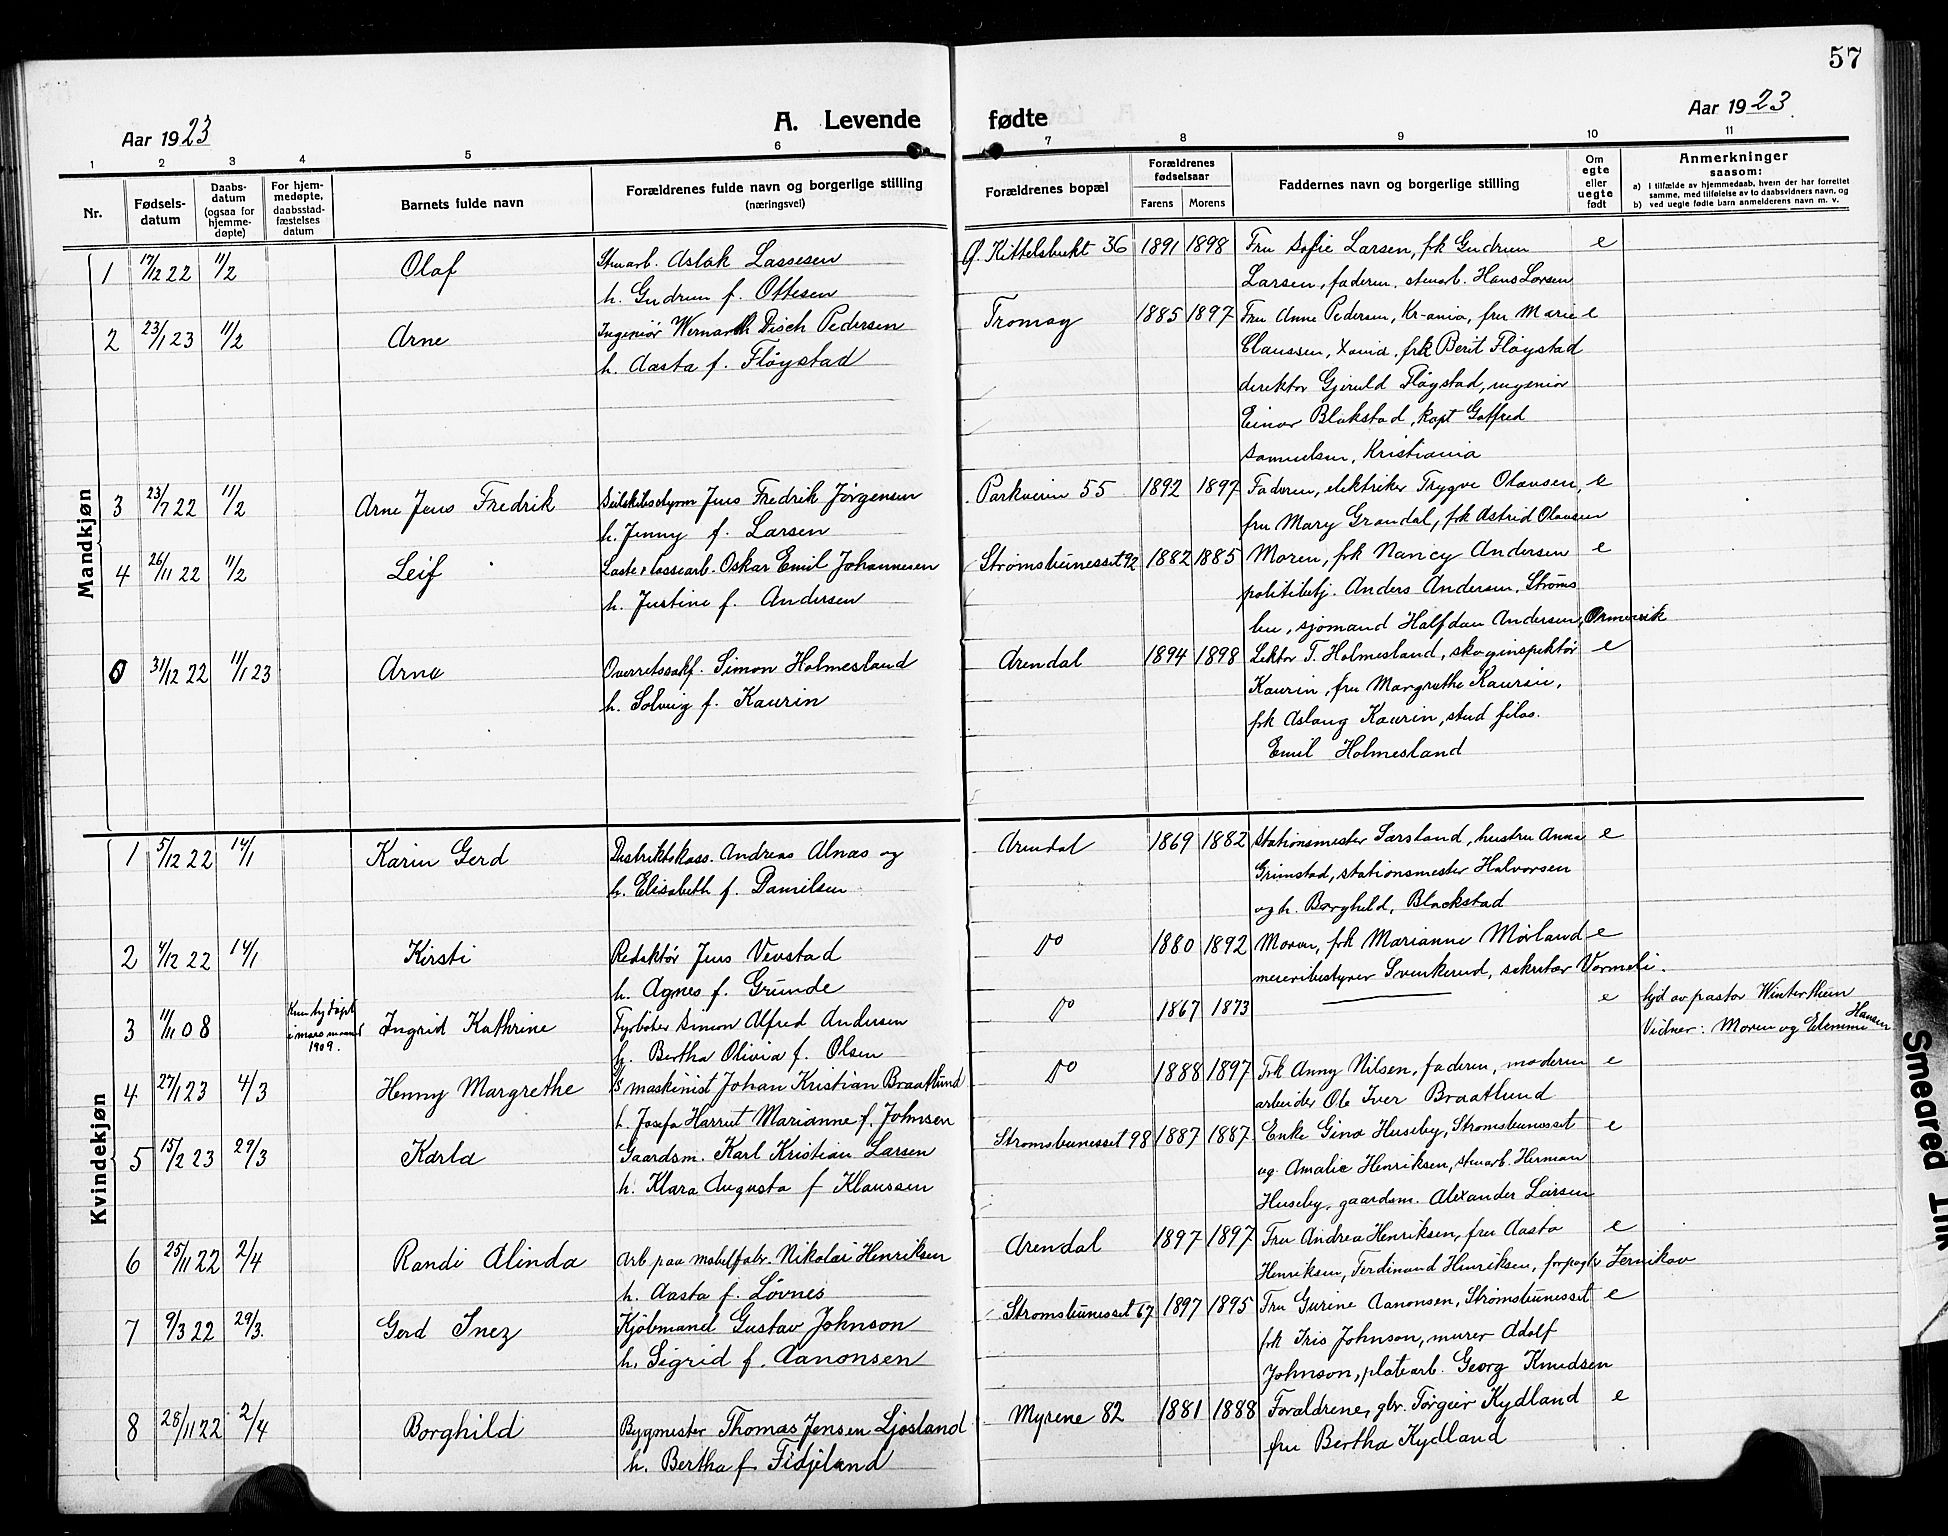 57
Aar 1923
A. Levende fødte
Aar 1923
1 2 3 4 5 6 7 8 9 10 11
Nr.
Fødsels-
datum
Daabs-
datum
(ogsaa for
hjemme-
døpte)
For hjem-
medøpte,
daabsstad-
fæstelses
datum
Barnets fulde navn
Forældrenes fulde navn og borgerlige stilling
(næringsvei)
Forældrenes bopæl
Forældrenes
fødselsaar
Farens Morens
Faddernes navn og borgerlige stilling
Om
egte
eller
uegte
født
Anmerkninger
saasom:
a) i tilfælde av hjemmedaab, hvem der har forrettet
samme, med tilføielse av to daabsvidners navn, og
b) ved uegte fødte barn anmelderens navn m. v.
Mandkjøn
1 17/12 22 11/2 Olaf Stuarb. Aslak Lassesen Ø. Kittelsbukt 36 1891 1898 Fru Sofie Larsen, frk Gudrun e
h. Gudrun f. Ottesen Larsen, faderen, stuarb. Hans Larsen
2 23/1 23 11/2 Arne Ingeniør Pedersen Tromøy 1885 1897 Fru Anne Pedersen, Kr-ania, fru Marie e
h. Aasta f. Fløystad Claussen, Xania, frk Berit Fløystad
direktør Gjeruld Fløystad, ingeniør
Einar Blakstad, kapt Gotfred
Samuelsen, Kristiania
3 23/7 22 11/2 Arne Jens Fredrik Jens Fredrik Jørgensen Parkveien 55 1892 1897 Faderen, elektriker Trygve Olausen, e
h. Jenny f. Larsen fru Mary Grandal, frk Astrid Olausen
4 26/11 22 11/2 Leif Laste & lossearb. Oskar Emil Johannesen Strømsbunesset 92 1882 1885 Moren, frk Nancy Andersen e
h. Justine f. Andersen politibetj. Anders Andersen, Strøms
bu, sjømand Halfdan Andersen,
0 31/12 22 11/1 23 Arne Overretssakf. Simon Holmesland Arendal 1894 1898 Lektor T. Holmesland, skoginspektør e
h. Solveig f. Kaurin Kaurin, fru Margrethe Kaurin,
frk Aslaug Kaurin, stud filos.
Emil Holmesland
Kvindekjøn
1 5/12 22 14/1 Karin Gerd Distriktskass. Andreas Alnæs og Arendal 1869 1882 Stationsmester Sørsland, hustru Anna e
h. Elisabeth f. Danielsen Grimstad, stationsmester Halvorsen
og h. Borghild, Blackstad
2 4/12 22 14/1 Kirsti Redaktør Jens Vevstad Do 1880 1892 Moren, frk Marianne Mørland e
h. Agnes f. Grunde meieribestyrer Svenkerud, sekretær Vormeli.
3 11/11 08 i mars maaned 1909. Ingrid Kathrine Fyrbøter Simon Alfred Andersen Do 1867 1873 e hjd av pastor Winterthun
h. Bertha Olivia f. Olsen Vidner: Moren og Hansen
4 27/1 23 4/3 Henny Margrethe D/S maskinist Johan Kristian Braatlund Do 1888 1897 Frk Anny Nilsen, faderen, moderen e
h. Josefa Harriet Marianne f. Johnsen arbeider Ole Iver Braatlund
5 15/2 23 29/3 Karla Gaardsm. Karl Kristian Larsen Strømsbunesset 98 1887 1887 Enke Gina Huseby, Strømsbunesset e
h. Klara Augusta f Klaussen og Amalie Henriksen, stuarb. Herman
Huseby, gaardsm. Alexander Larsen
6 25/11 22 2/4 Randi Alinda Arb paa møbelfabr. Nikolai Henriksen Arendal 1897 1897 Fru Andrea Henriksen, fru Aasta e
h. Aasta f. Løvnes Henriksen, Ferdinand Henriksen,
7 9/3 22 29/3. Gerd Inez Kjøbmand Gustav Johnson Strømsbunesset 67 1897 1895 Fru Gurine Aanonsen, Strømsbunesset e
h. Sigrid f. Aanonsen frk Iris Johnson, murer Adolf
Johnson, platearb. Georg Knudsen
8 28/11 22 2/4 Borghild Bygmester Thomas Jensen Ljosland Myrene 82 1881 1888 Forældrene, gbr. Torgeir Kydland e
h. Bertha f Fidjeland fru Bertha Kydland
Smeared Ink